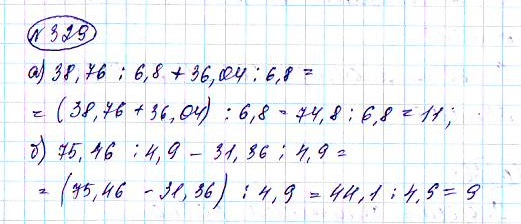 № 329
а) 38,76 : 6,8 + 36,04 : 6,8 =
= (38,76 + 36,04) : 6,8 = 74,8 : 6,8 = 11;
б) 75,46 : 4,9 - 31,36 : 4,9 =
= (75,46 - 31,36) : 4,9 = 44,1 : 4,9 = 9